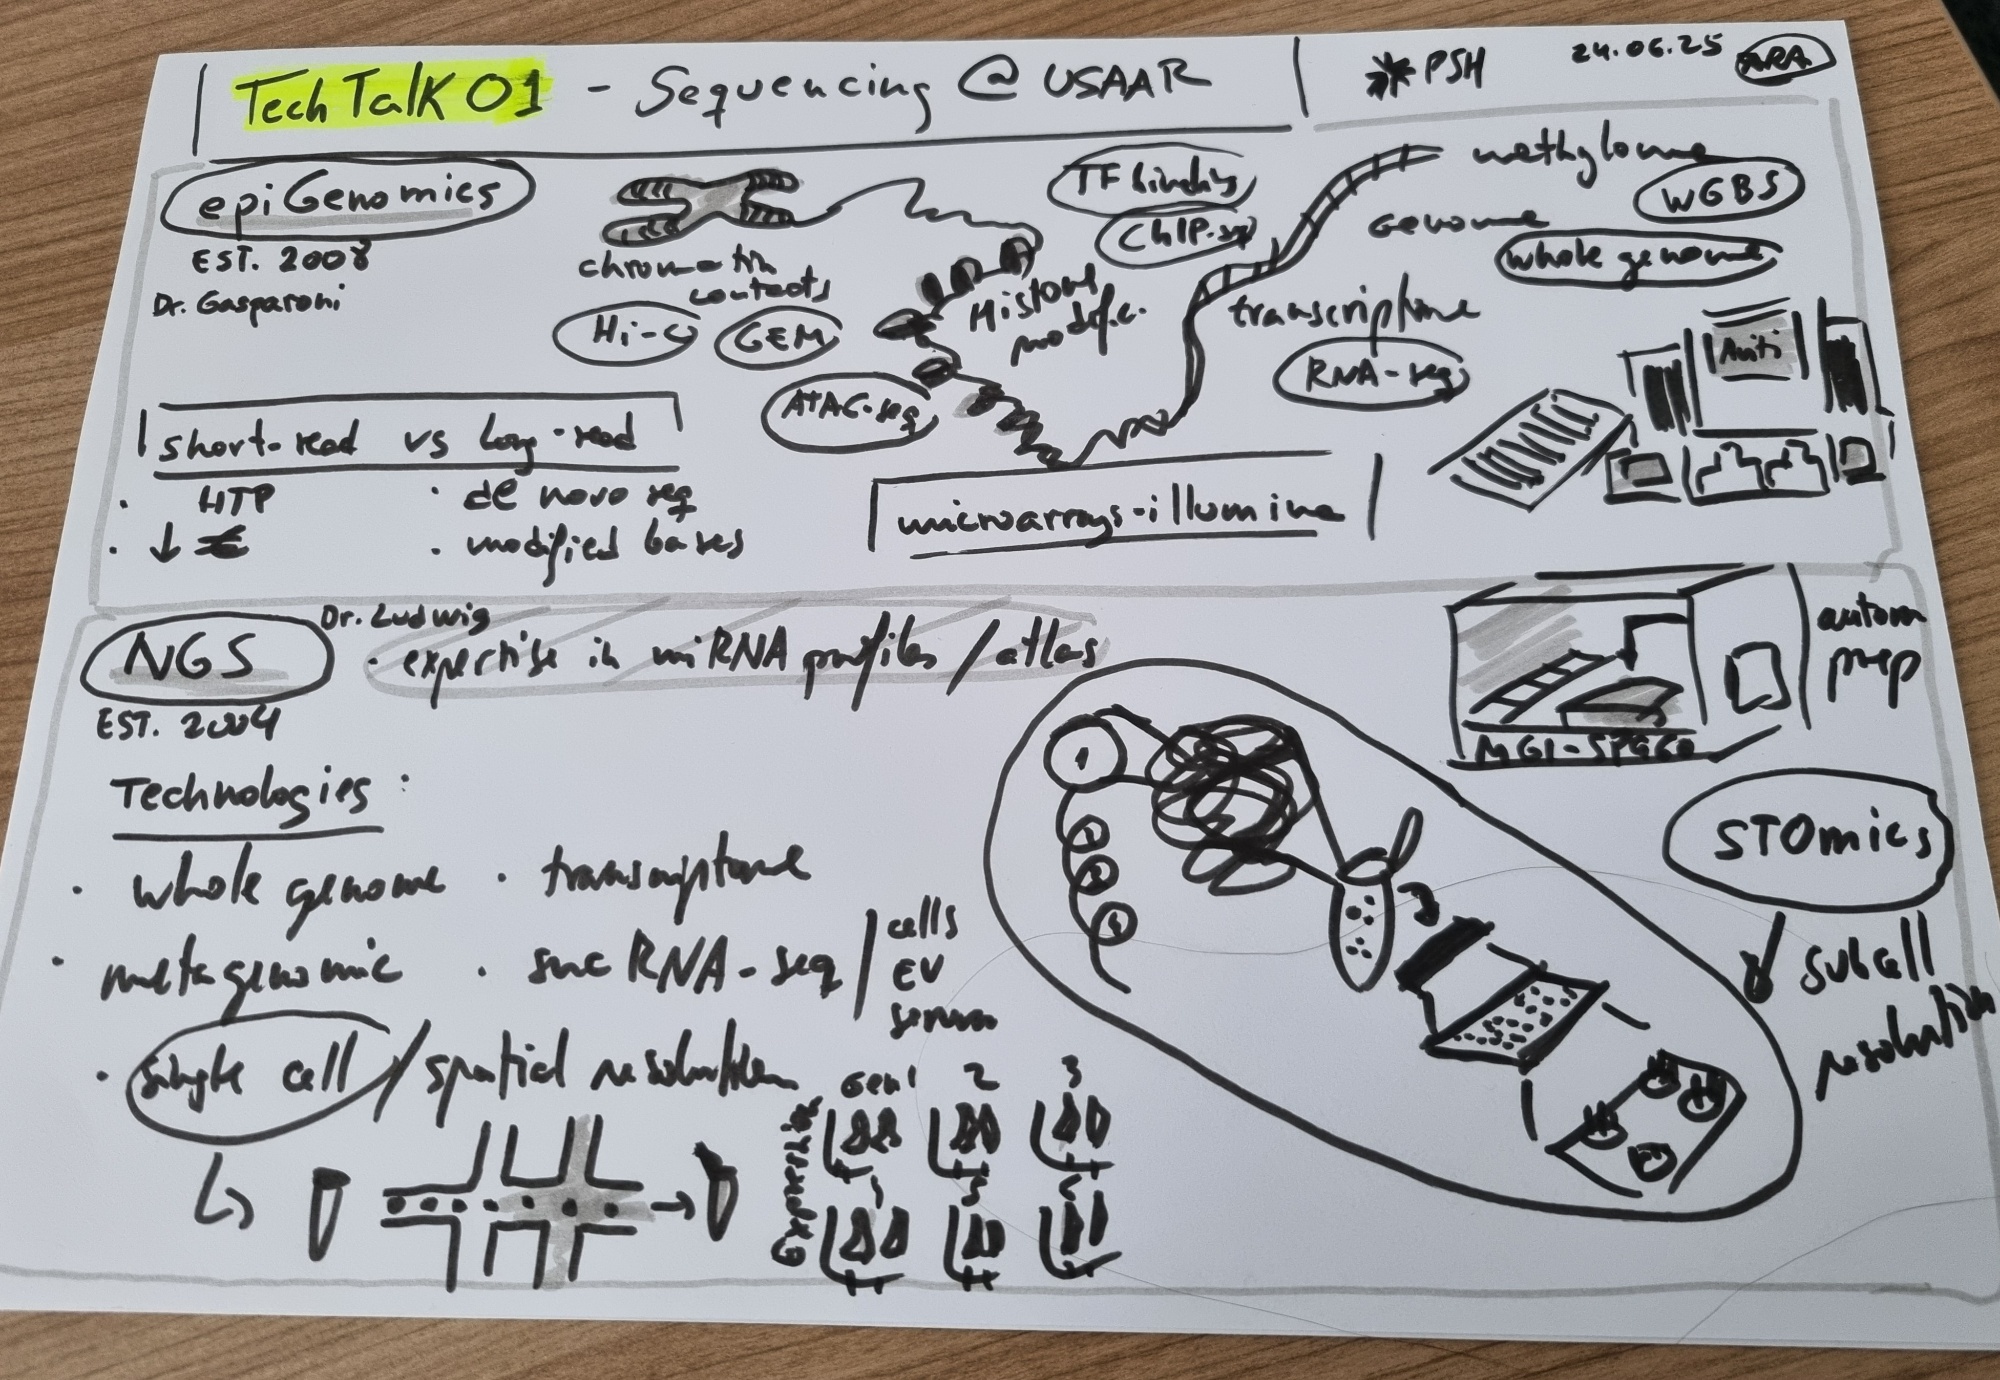 Tech Talk 01 - Sequencing @ USAAR
PSH
24.06.25
ARA
epiGenomics
EST. 2008
Dr. Gasparoni
chromatin
contacts
Hi-C
GEM
ATAC-seq
Histone
modific.
TF binding
ChIP-sq
methylome
WGBS
Genome
whole genome
transcriptome
RNA-seq
short-read vs long-read
· HTP
· ↓ €
· de novo seq
· modified bases
microarrays - illumina
NGS
EST. 2004
Dr. Ludwig
· expertise in miRNA profiles / atlas
autom
prep
MGI-SP960
Technologies:
· whole genome · transcriptome
· metagenomic · snc RNA-seq
cells
EV
serum
· single cell / spatial resolution
Expression
Gen 1 2 3
STOmics
subcell
resolution